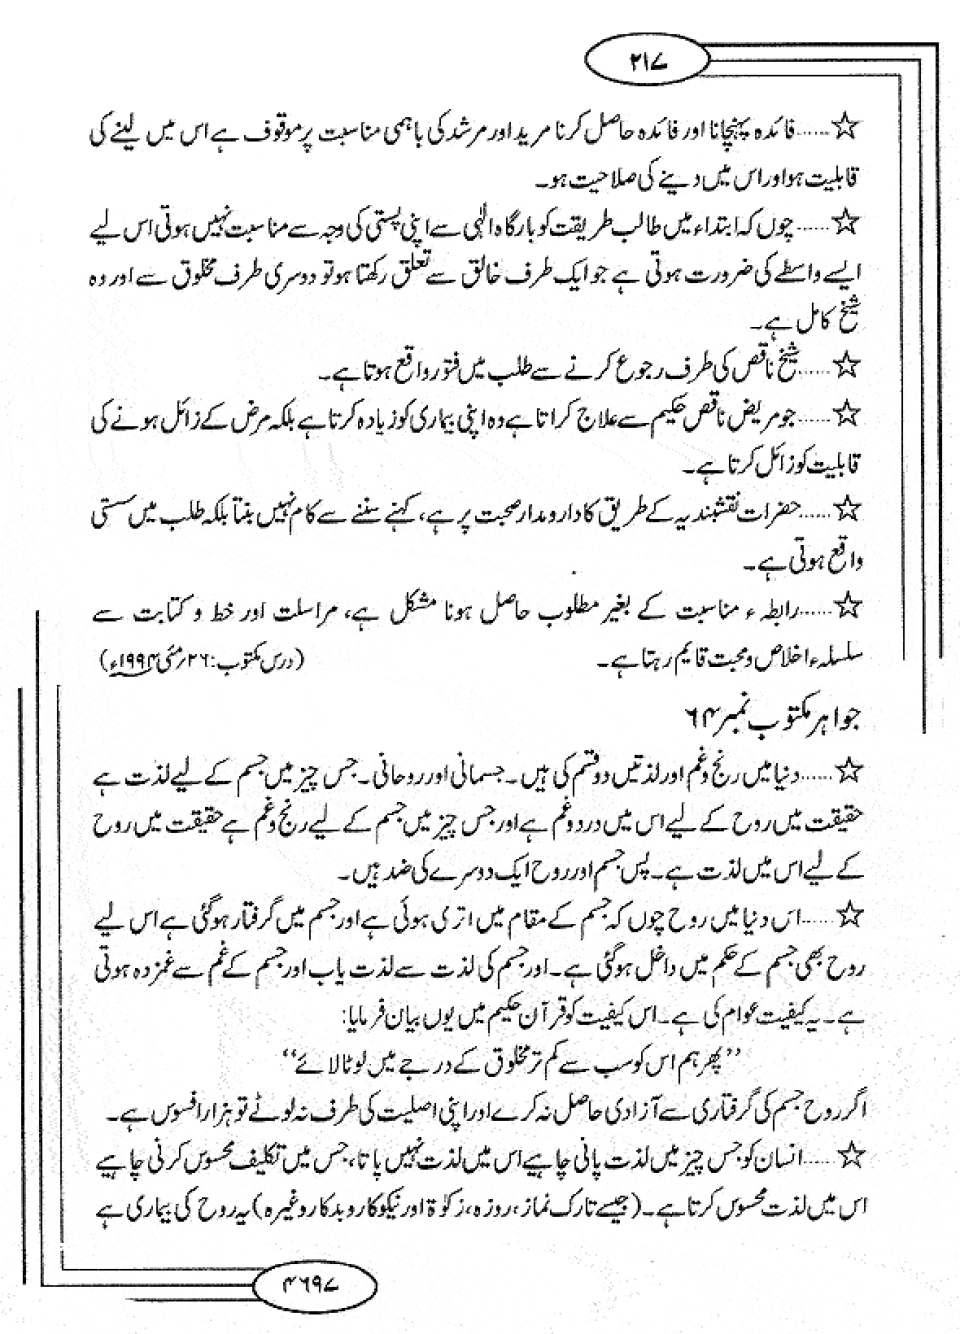 ۲۱۷
☆......فائدہ پہنچانا اور فائدہ حاصل کرنا مرید اور مرشد کی باہمی مناسبت پر موقوف ہے اس میں لینے کی
قابلیت ہو اور اس میں دینے کی صلاحیت ہو۔
☆......چوں کہ ابتداء میں طالب طریقت کو بارگاہ الٰہی سے اپنی پستی کی وجہ سے مناسبت نہیں ہوتی اس لیے
ایسے واسطے کی ضرورت ہوتی ہے جو ایک طرف خالق سے تعلق رکھتا ہو تو دوسری طرف مخلوق سے اور وہ
شیخ کامل ہے۔
☆......شیخ ناقص کی طرف رجوع کرنے سے طلب میں فتور واقع ہوتا ہے۔
☆......جو مریض ناقص حکیم سے علاج کراتا ہے وہ اپنی بیماری کو زیادہ کرتا ہے بلکہ مرض کے زائل ہونے کی
قابلیت کو زائل کرتا ہے۔
☆......حضرات نقشبندیہ کے طریق کا دارومدار صحبت پر ہے، کہنے سننے سے کام نہیں بنتا بلکہ طلب میں سستی
واقع ہوتی ہے۔
☆......رابطہء مناسبت کے بغیر مطلوب حاصل ہونا مشکل ہے، مراسلت اور خط و کتابت سے
سلسلہء اخلاص و محبت قایم رہتا ہے۔ (درس مکتوب: ۲۶؍مئی ۱۹۹۴ء)
جواہر مکتوب نمبر ۶۴
☆......دنیا میں رنج و غم اور لذتیں دو قسم کی ہیں۔ جسمانی اور روحانی۔ جس چیز میں جسم کے لیے لذت ہے
حقیقت میں روح کے لیے اس میں درد و غم ہے اور جس چیز میں جسم کے لیے رنج و غم ہے حقیقت میں روح
کے لیے اس میں لذت ہے۔ پس جسم اور روح ایک دوسرے کی ضد ہیں۔
☆......اس دنیا میں روح چوں کہ جسم کے مقام میں اتری ہوئی ہے اور جسم میں گرفتار ہوگئی ہے اس لیے
روح بھی جسم کے حکم میں داخل ہوگئی ہے۔ اور جسم کی لذت سے لذت یاب اور جسم کے غم سے غمزدہ ہوتی
ہے۔ یہ کیفیت عوام کی ہے۔ اس کیفیت کو قرآن حکیم میں یوں بیان فرمایا:
”پھر ہم اس کو سب سے کم تر مخلوق کے درجے میں لوٹا لائے“
اگر روح جسم کی گرفتاری سے آزادی حاصل نہ کرے اور اپنی اصلیت کی طرف نہ لوٹے تو ہزار افسوس ہے۔
☆......انسان کو جس چیز میں لذت پانی چاہیے اس میں لذت نہیں پاتا، جس میں تکلیف محسوس کرنی چاہیے
اس میں لذت محسوس کرتا ہے۔ (جیسے تارک نماز، روزہ، زکوٰۃ اور نیکوکار و بدکار وغیرہ) یہ روح کی بیماری ہے
۴۶۹۷